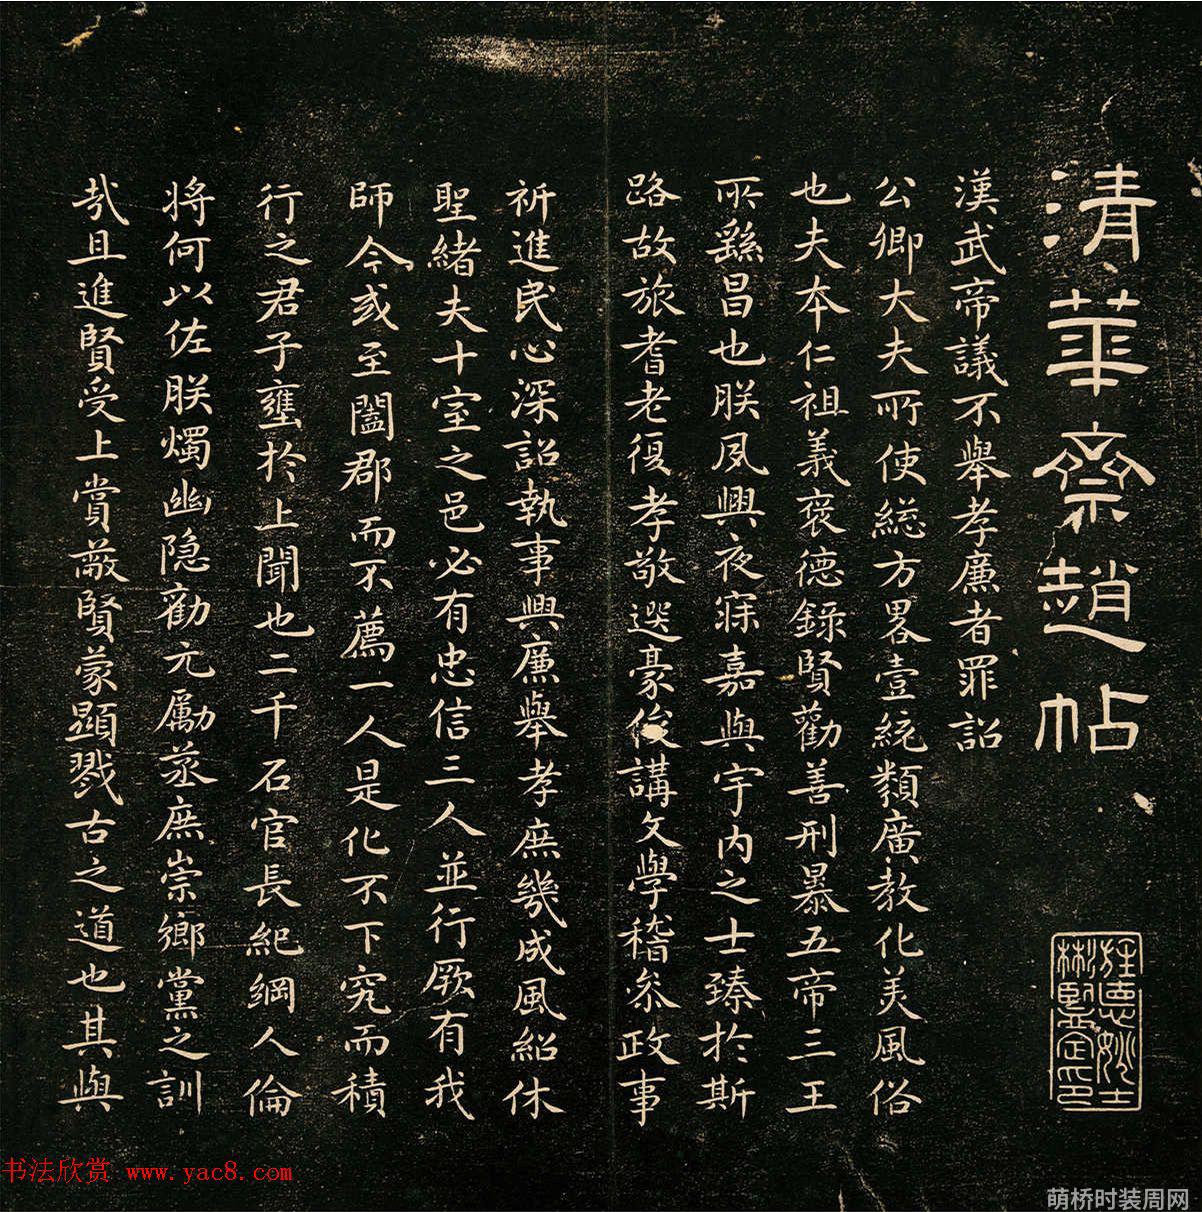 清華齋趙帖
漢武帝議不舉孝廉者罪詔
公卿大夫所使總方畧壹統類廣教化美風俗
也夫本仁祖義褒德錄賢勸善刑暴五帝三王
所繇昌也朕夙興夜寐嘉與宇內之士臻於斯
路故旅耆老復孝敬選豪俊講文學稽參政事
祈進民心深詔執事興廉舉孝庶幾成風紹休
聖緒夫十室之邑必有忠信三人並行厥有我
師今或至闔郡而不薦一人是化不下究而積
行之君子壅於上聞也二千石官長紀綱人倫
將何以佐朕燭幽隱勸元勵蒸庶崇鄉黨之訓
哉且進賢受上賞蔽賢蒙顯戮古之道也其與
书法欣赏 www.yac8.com
萌桥时装周网